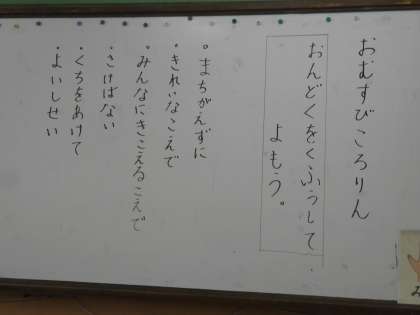 おむすびころりん
おんどくをくふうして
よもう。
。まちがえずに
・きれいなこえで
・みんなにきこえるこえで
・さけばない
・くちをあけて
・よいしせい
み